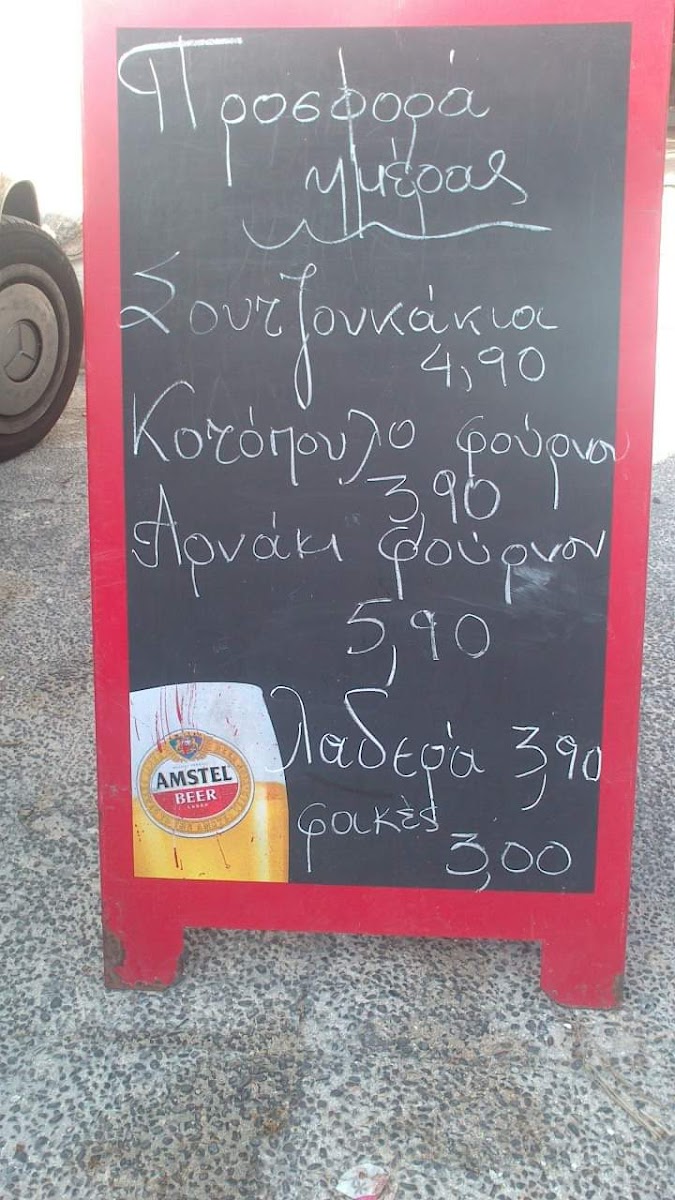 Προσφορά
ημέρας
Σουτζουκάκια
4,90
Κοτόπουλο φούρνου
3,90
Αρνάκι φούρνου
5,90
Λαδερά 3,90
φακές
3,00
AMSTEL
BEER
LAGER